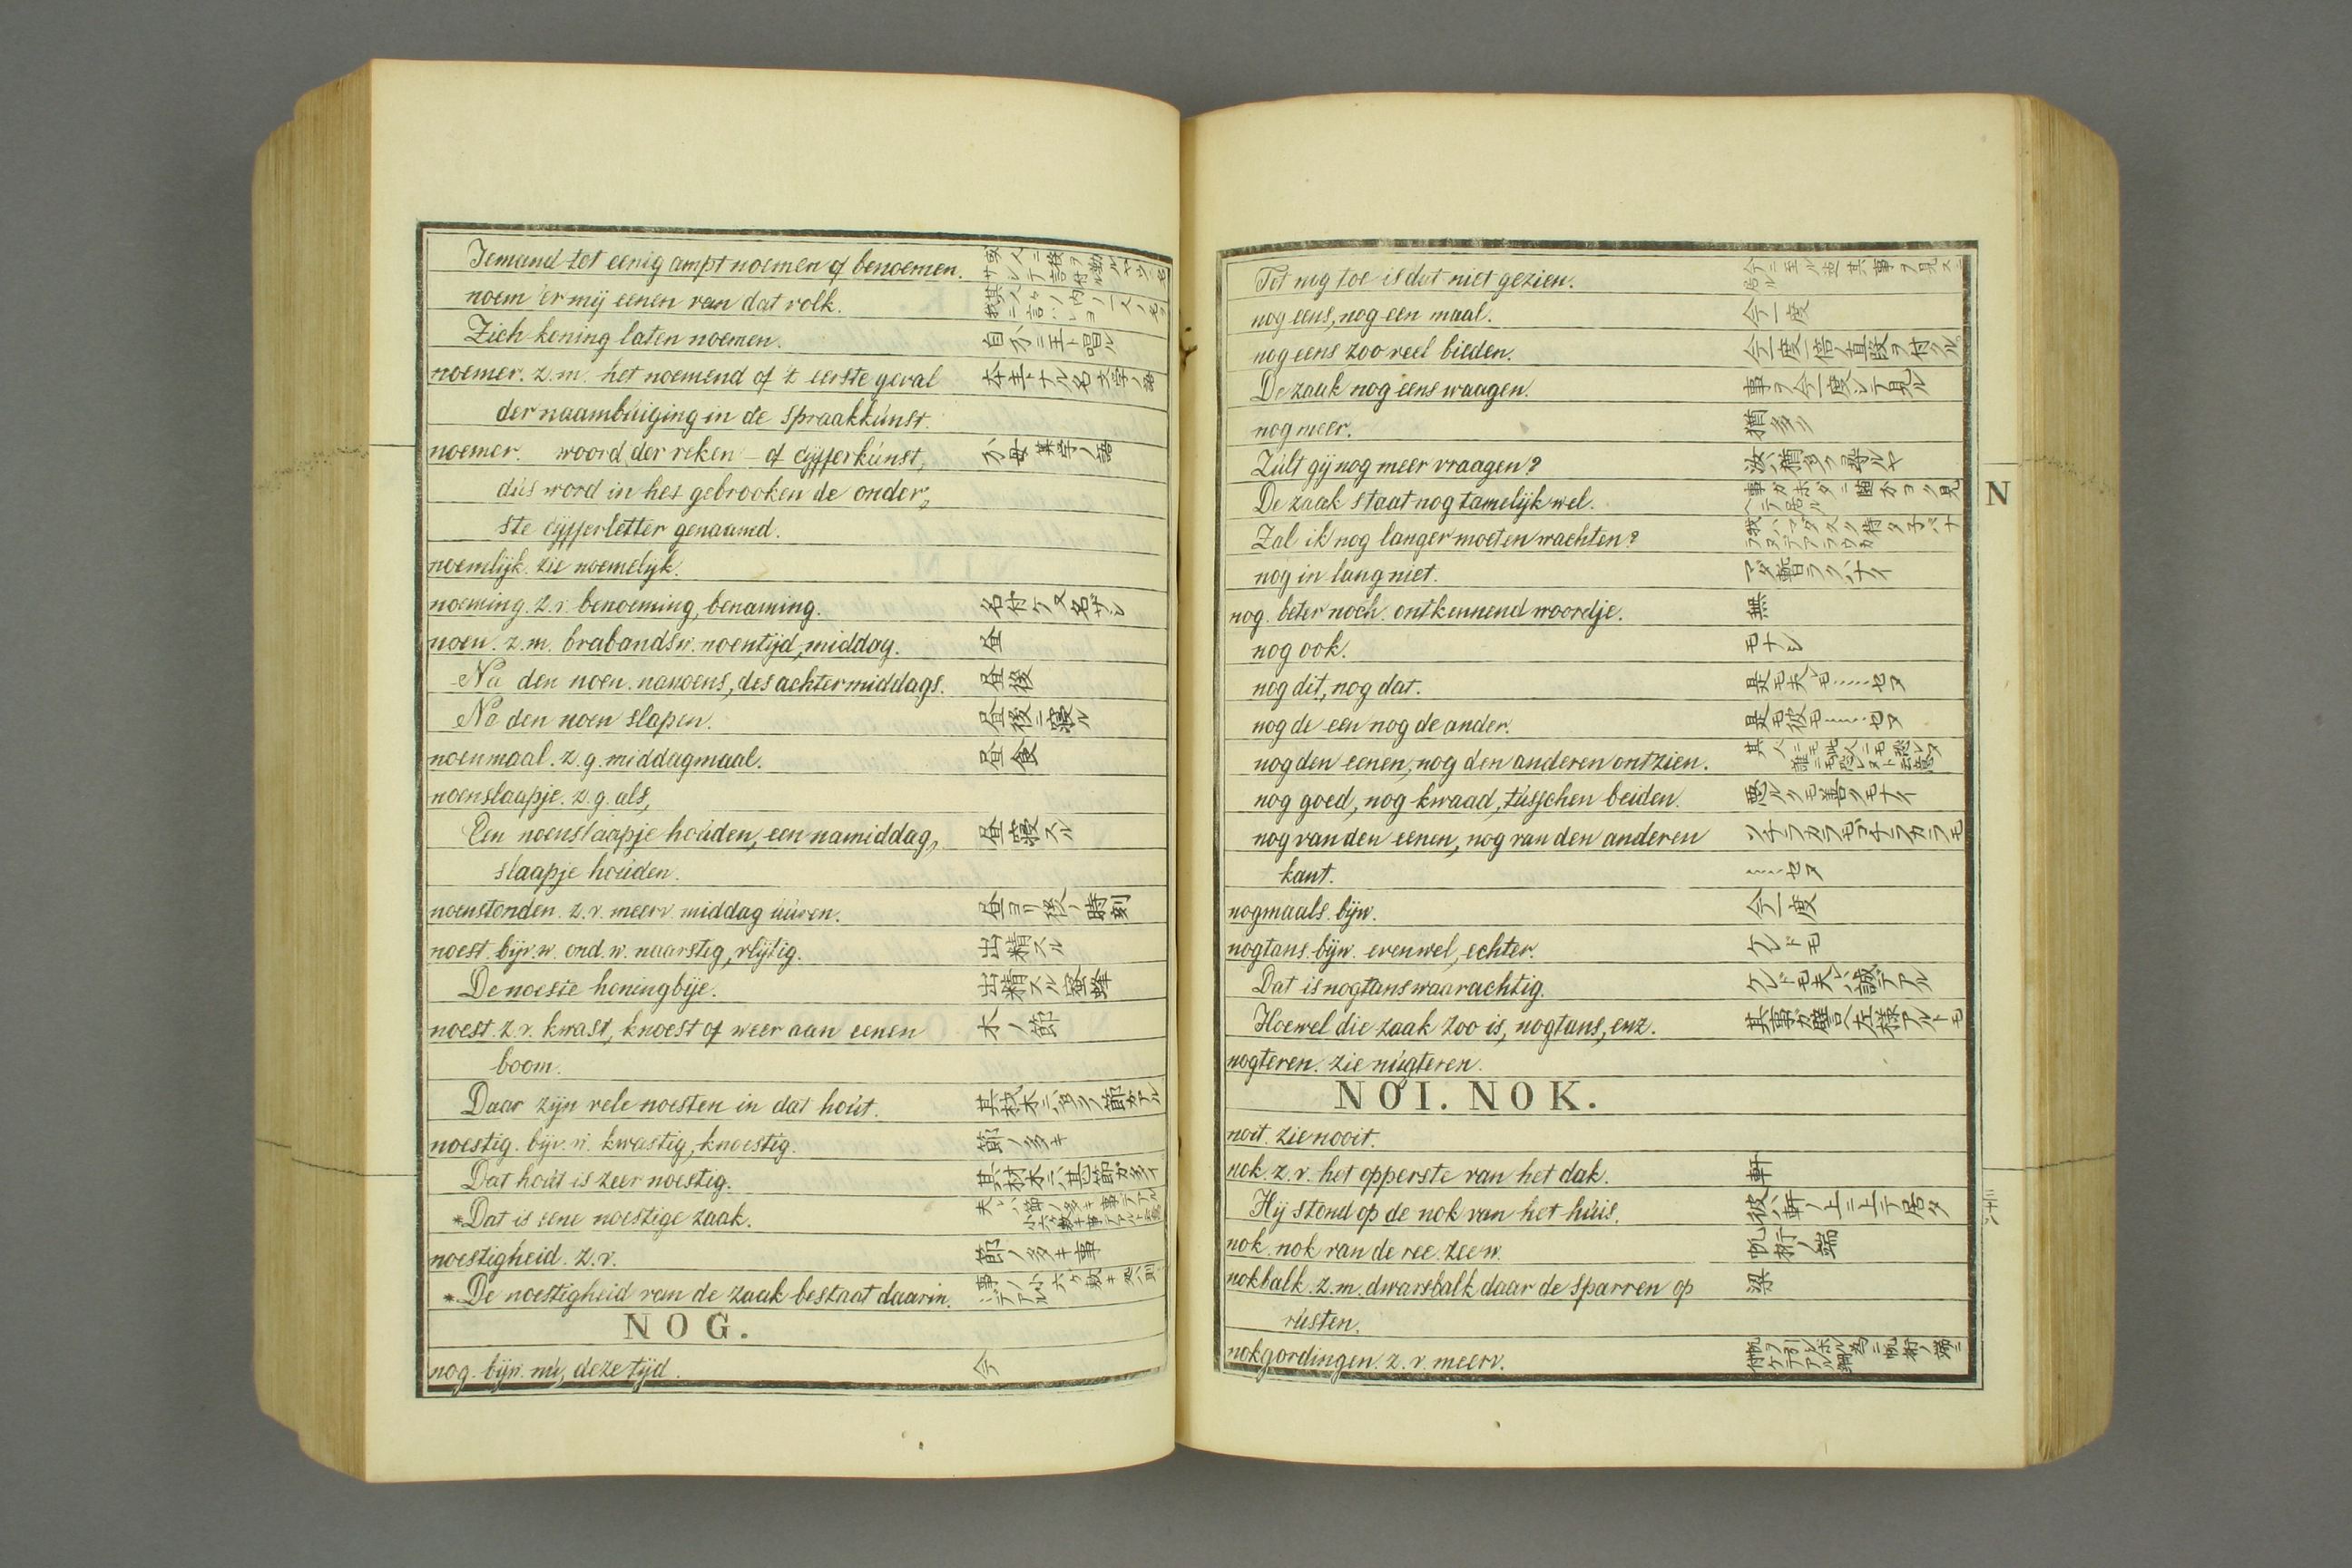 Iemand tot eenig ampt noemen of benoemen.
noem 'er mij eenen van dat volk.
Zich koning laten noemen. 自分ニ王ト唱ル
noemer. z.m. het noemend of 't eerste geval 本主トナル名 文字ノ語
der naambúiging in de spraakkúnst.
noemer. woord der reken- of cijfferkúnst, 分母 算学ノ語
dús word in het gebrooken de onder„
ste cijfferletter genaamd.
noemlijk. zie noemelijk.
noeming. z.v. benoeming, benaming. 名付ケ又名ザシ
noen. z.m. brabandsw. noentijd, middag. 昼
Na den noen. nanoens, des achtermiddags. 昼後
Na den noen slapen. 昼後ニ寝ル
noenmaal. z.g. middagmaal. 昼食
noenslaapje. z.g. als,
Een noenslaapje hoúden, een namiddag„ 昼寝スル
slaapje hoúden.
noenstonden. z.v. meerv. middag úúren. 昼ヨリ後ノ時刻
noest. bijv.w. oud.w. naarstig, vlijtig. 出精スル
De noeste honingbije. 出精スル蜜蜂
noest. z.v. kwast, knoest of weer aan eenen 木ノ節
boom.
Daar zijn vele noesten in dat hoút. 其材木ニハ多クノ節ガアル
noestig. bijv.w. kwastig, knoestig. 節ノ多キ
Dat hoút is zeer noestig. 其材木ニハ甚節ガ多イ
*Dat is eene noestige zaak. 夫レハ節ノ多キ事デアル
noestigheid. z.v. 節ノ多キ事
*De noestigheid van de zaak bestaat daarin.
NOG.
nog. bijw. nú, deze tijd. 今
Tot nog toe is dat niet gezien. 今ニ至ル迄其事ヲ見ズニ居ル
nog eens, nog een maal. 今一度
nog eens zoo veel bieden. 今一度一倍ノ直段ヲ付クル
De zaak nog eens waagen. 事ヲ今一度シテ見ル
nog meer. 猶多ク
Zúlt gij nog meer vraagen? 汝ハ猶多ク尋ルヤ
De zaak staat nog tamelijk wel.
Zal ik nog langer moeten wachten?
nog in lang niet. マダ暫ラクハナイ
nog. beter noch. ontkennend woordje. 無
nog ook. モナシ
nog dit, nog dat. 是モ夫レモ……セヌ
nog de een nog de ander. 是モ彼モ……セヌ
nog den eenen, nog den anderen ontzien.
nog goed, nog kwaad, tússchen beiden. 悪ルクモ善クモナイ
nog van den eenen, nog van den anderen ソチラカラモコチラカラモ
kant. ……セヌ
nogmaals. bijw. 今一度
nogtans. bijw. evenwel, echter. ケレドモ
Dat is nogtans waarachtig. ケレドモ夫レハ誠デアル
Hoewel die zaak zoo is, nogtans, enz. 其事ガ譬ヘ左様アルトモ
nogteren. zie núgteren.
NOI. NOK.
noit. zie nooit.
nok. z.v. het opperste van het dak. 軒
Hij stond op de nok van het húis. 彼ハ軒ノ上ニ上テ居タ
nok. nok van de ree. zeew. 帆桁ノ端
nokbalk. z.m. dwarsbalk daar de sparren op 梁
rústen.
nokgordingen. z.v. meerv.
N